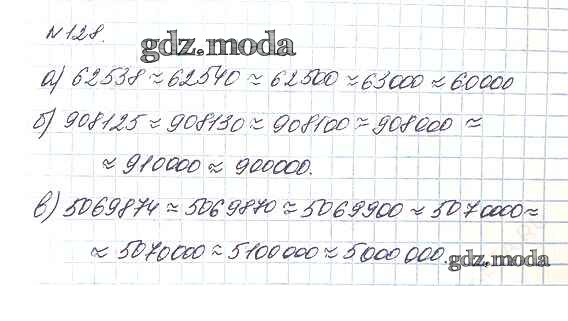 №128.
gdz.moda
а) 62538 ≈ 62540 ≈ 62500 ≈ 63000 ≈ 60000
б) 908125 ≈ 908130 ≈ 908100 ≈ 908000 ≈
≈ 910000 ≈ 900000.
в) 5069874 ≈ 5069870 ≈ 5069900 ≈ 5070000 ≈
≈ 5070000 ≈ 5100000 ≈ 5000000.
gdz.moda